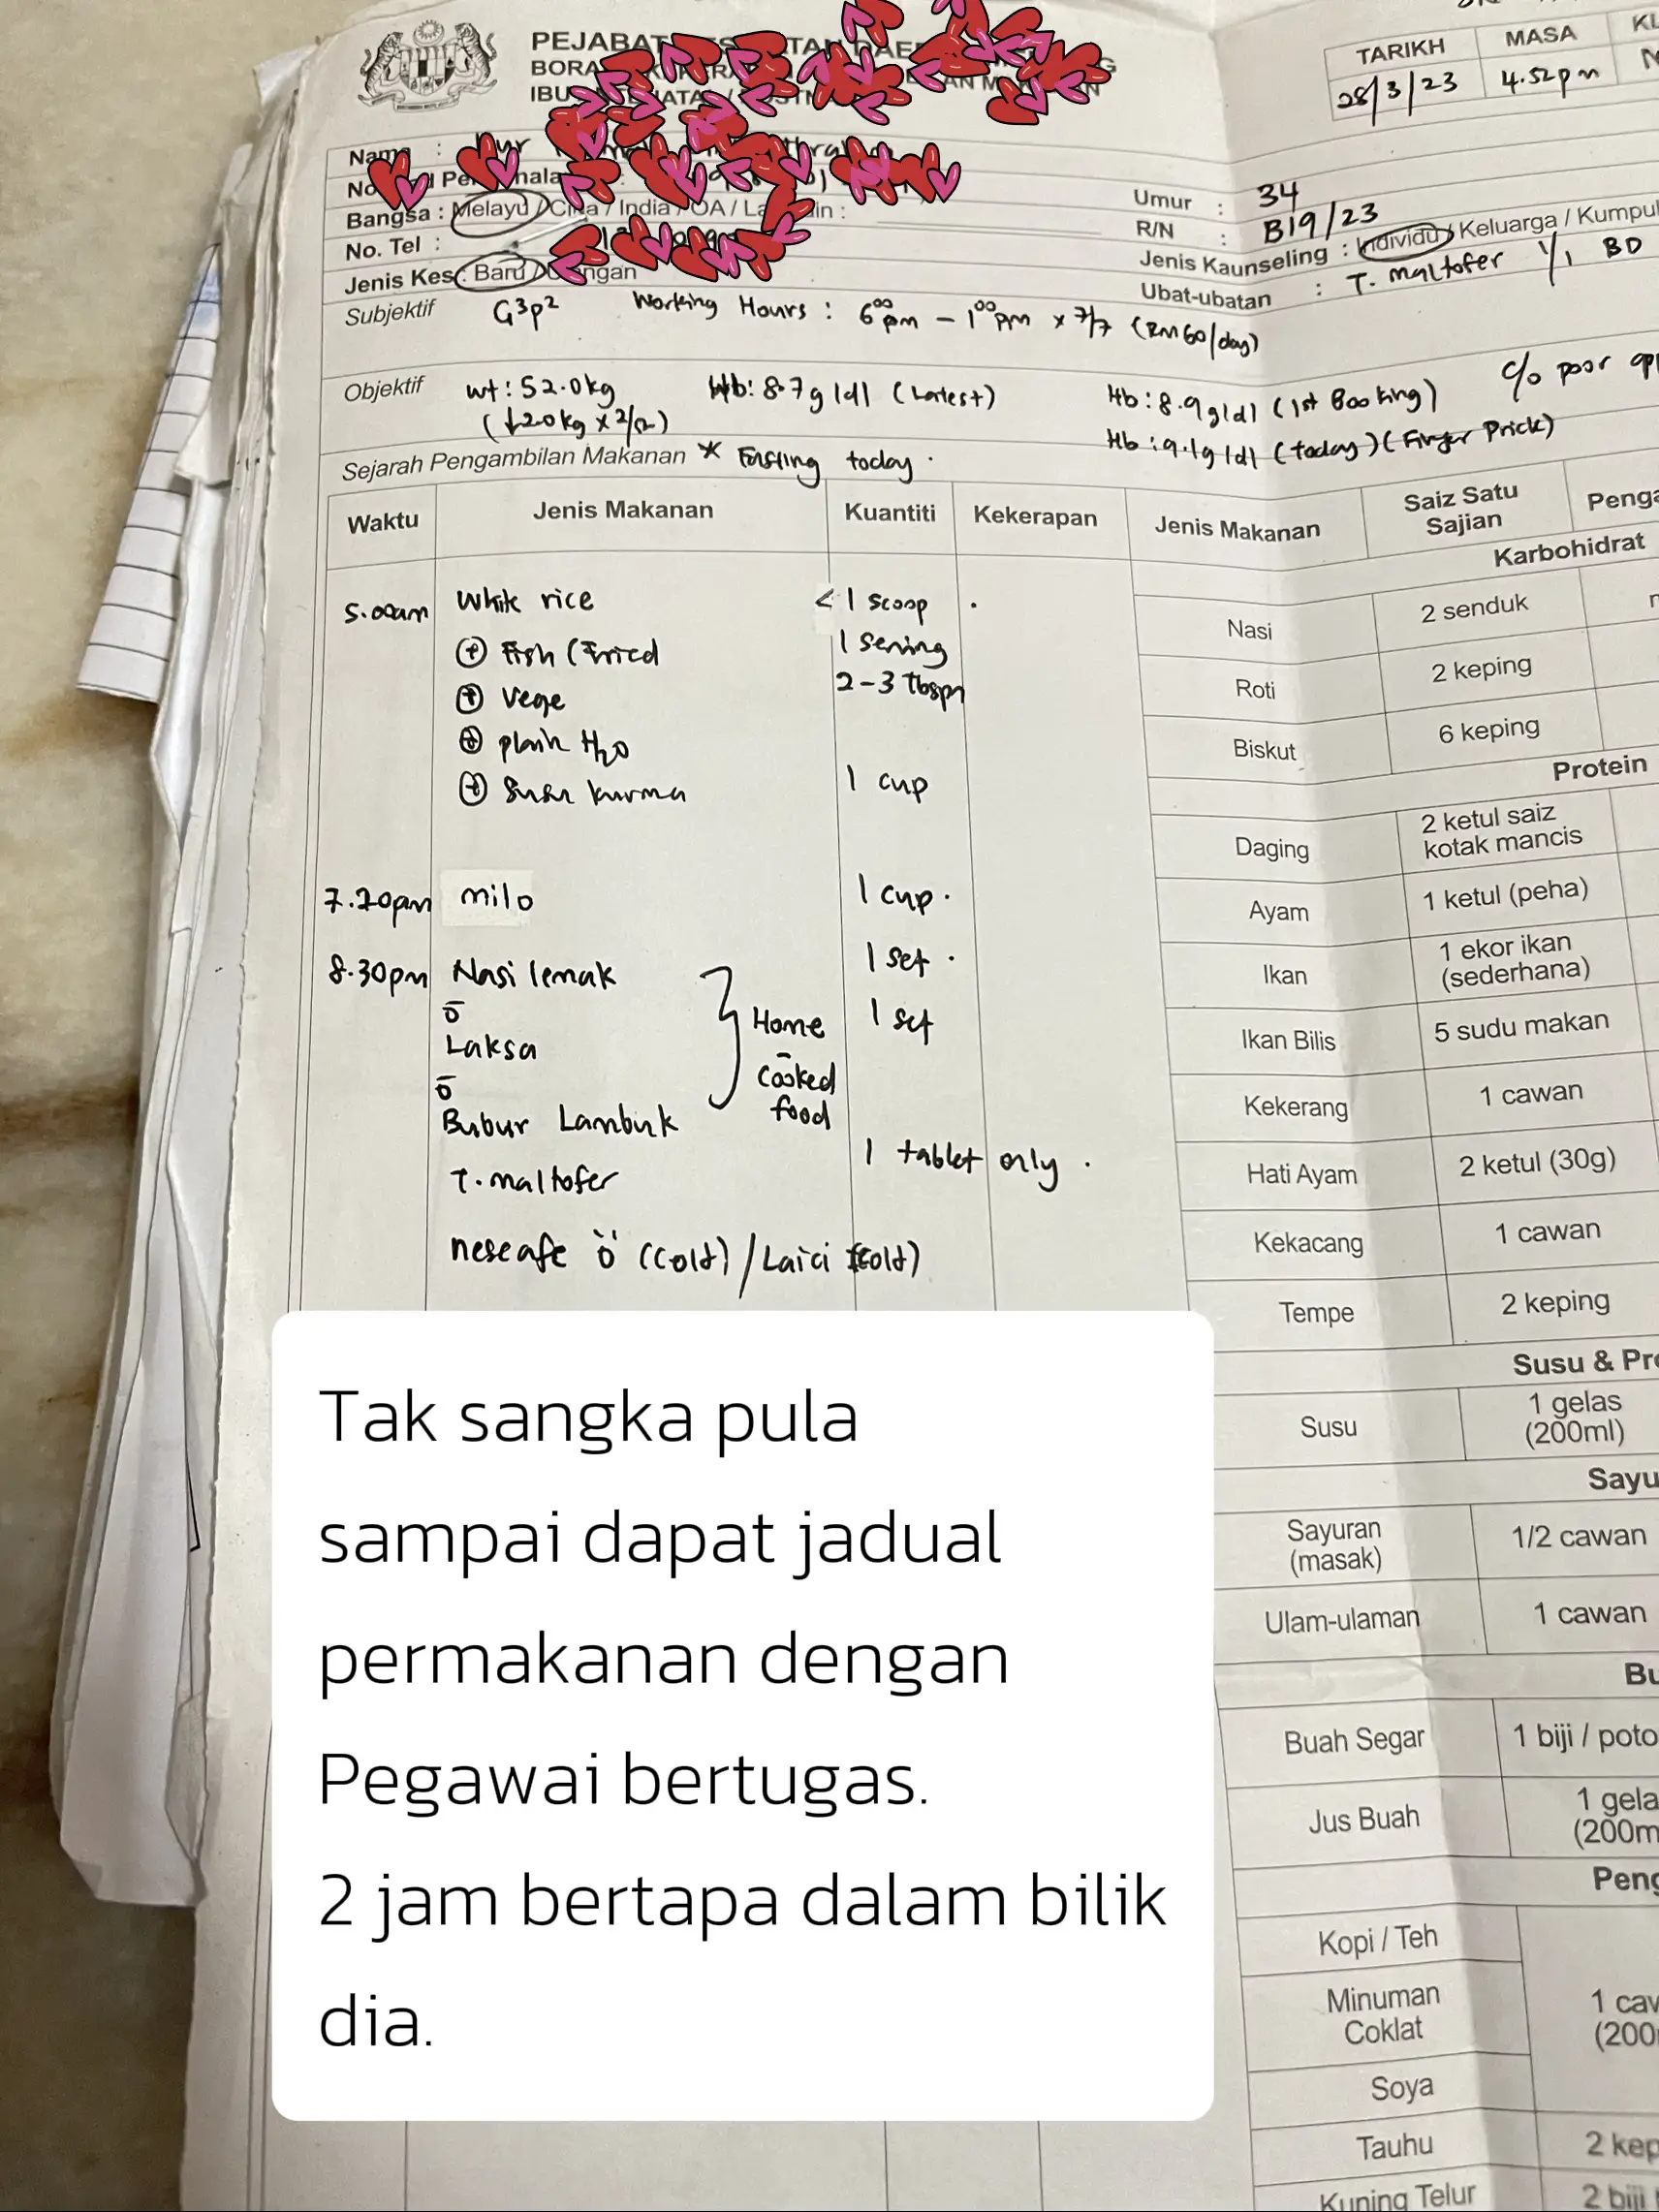 PEJABAT
TARIKH
MASA
28/3/23
4.52pm
Nama :
Bangsa : Melayu / Cina / India / OA /
No. Tel :
Jenis Kes : Baru /
Umur : 34
R/N : B19/23
Jenis Kaunseling : Individu / Keluarga /
Ubat-ubatan : T. maltofer 1/1 BD
Subjektif G3p2 Working Hours : 6 00 pm - 1 00 pm x 7/7 (RM60/day)
Objektif wt: 52.0kg Hb: 8.7g/dl (Latest) Hb: 8.9g/dl (1st Booking) c/o poor
Hb: 9.1g/dl (today) (Finger Prick)
Sejarah Pengambilan Makanan * Fasting today.
Waktu Jenis Makanan Kuantiti Kekerapan
5.00am White rice < 1 scoop
+ Fish (Fried 1 serving
+ vege 2-3 tbspn
+ plain H2O
+ Susu kurma 1 cup
7.20pm milo 1 cup.
8.30pm Nasi lemak 1 set.
ō
Laksa 1 set
ō
Bubur Lambuk
Home
cooked
food
T. maltofer 1 tablet only.
nescafe ö (cold) / Laici (cold)
Jenis Makanan Saiz Satu Sajian
Karbohidrat
Nasi 2 senduk
Roti 2 keping
Biskut 6 keping
Protein
Daging 2 ketul saiz kotak mancis
Ayam 1 ketul (peha)
Ikan 1 ekor ikan (sederhana)
Ikan Bilis 5 sudu makan
Kekerang 1 cawan
Hati Ayam 2 ketul (30g)
Kekacang 1 cawan
Tempe 2 keping
Susu &
Susu 1 gelas (200ml)
Sayuran (masak) 1/2 cawan
Ulam-ulaman 1 cawan
Buah Segar 1 biji /
Jus Buah 1
Kopi / Teh
Minuman Coklat 1
Soya
Tauhu 2
Kuning Telur 2 biji
Tak sangka pula
sampai dapat jadual
permakanan dengan
Pegawai bertugas.
2 jam bertapa dalam bilik
dia.